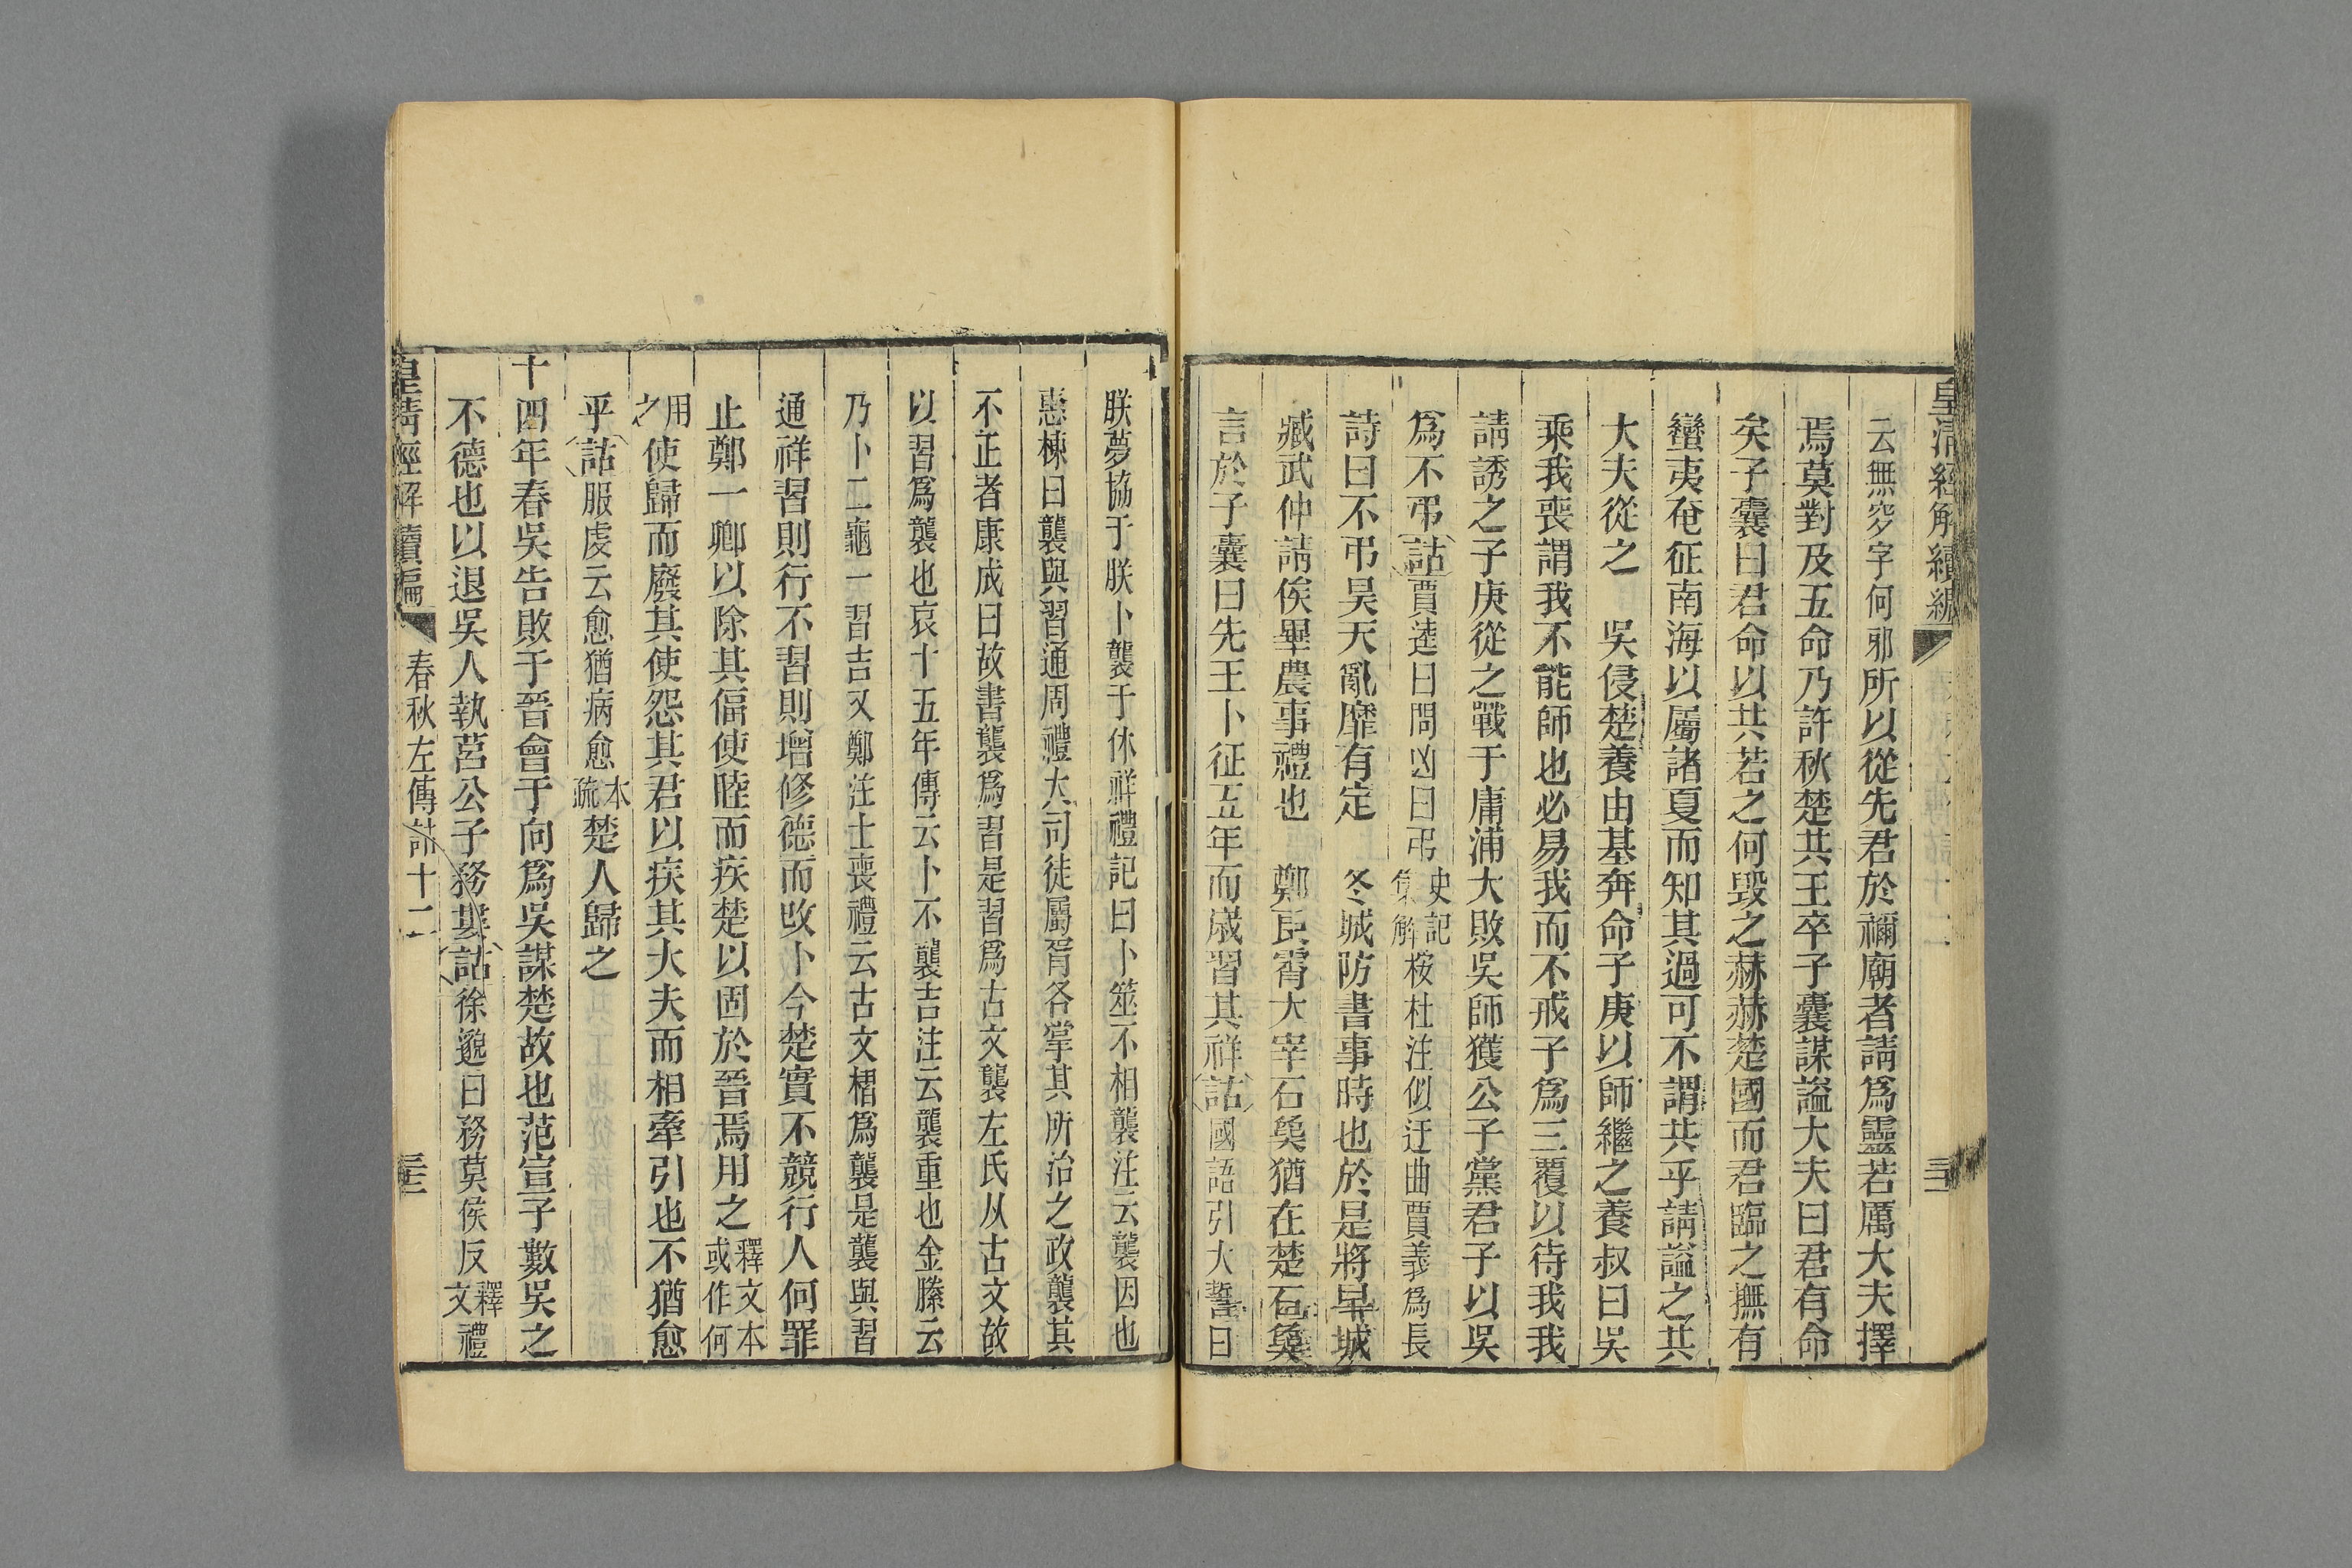 皇清經解續編
云無穸字何邪所以從先君於禰廟者請爲靈若厲大夫擇
焉莫對及五命乃許秋楚共王卒子囊謀謚大夫曰君有命
矣子囊曰君命以共若之何毀之赫赫楚國而君臨之撫有
蠻夷奄征南海以屬諸夏而知其過可不謂共乎請謚之共
大夫從之　吳侵楚養由基奔命子庚以師繼之養叔曰吳
乘我喪謂我不能師也必易我而不戒子爲三覆以待我我
請誘之子庚從之戰于庸浦大敗吳師獲公子黨君子以吳
爲不弔詁賈逵曰問凶曰弔史記集解桉杜注似迂曲賈義爲長
詩曰不弔昊天亂靡有定　冬城防書事時也於是將早城
臧武仲請俟畢農事禮也　鄭良霄大宰石㚟猶在楚石㚟
言於子囊曰先王卜征五年而歲習其祥詁國語引大誓曰
朕夢協于朕卜襲于休祥禮記曰卜筮不相襲注云襲因也
惠棟曰襲與習通周禮大司徒屬胥各掌其所治之政襲其
不正者康成曰故書襲爲習是習爲古文襲左氏从古文故
以習爲襲也哀十五年傳云卜不襲吉注云襲重也金縢云
乃卜二龜一習吉又鄭注士喪禮云古文褶爲襲是襲與習
通祥習則行不習則增修德而改卜今楚實不競行人何罪
止鄭一卿以除其偪使睦而疾楚以固於晉焉用之釋文本或作何
用之使歸而廢其使怨其君以疾其大夫而相牽引也不猶愈
乎詁服虔云愈猶病愈本疏楚人歸之
十四年春吳告敗于晉會于向爲吳謀楚故也范宣子數吳之
不德也以退吳人執莒公子務婁詁徐邈曰務莫侯反釋文禮
皇清經解續編　春秋左傳詁十二